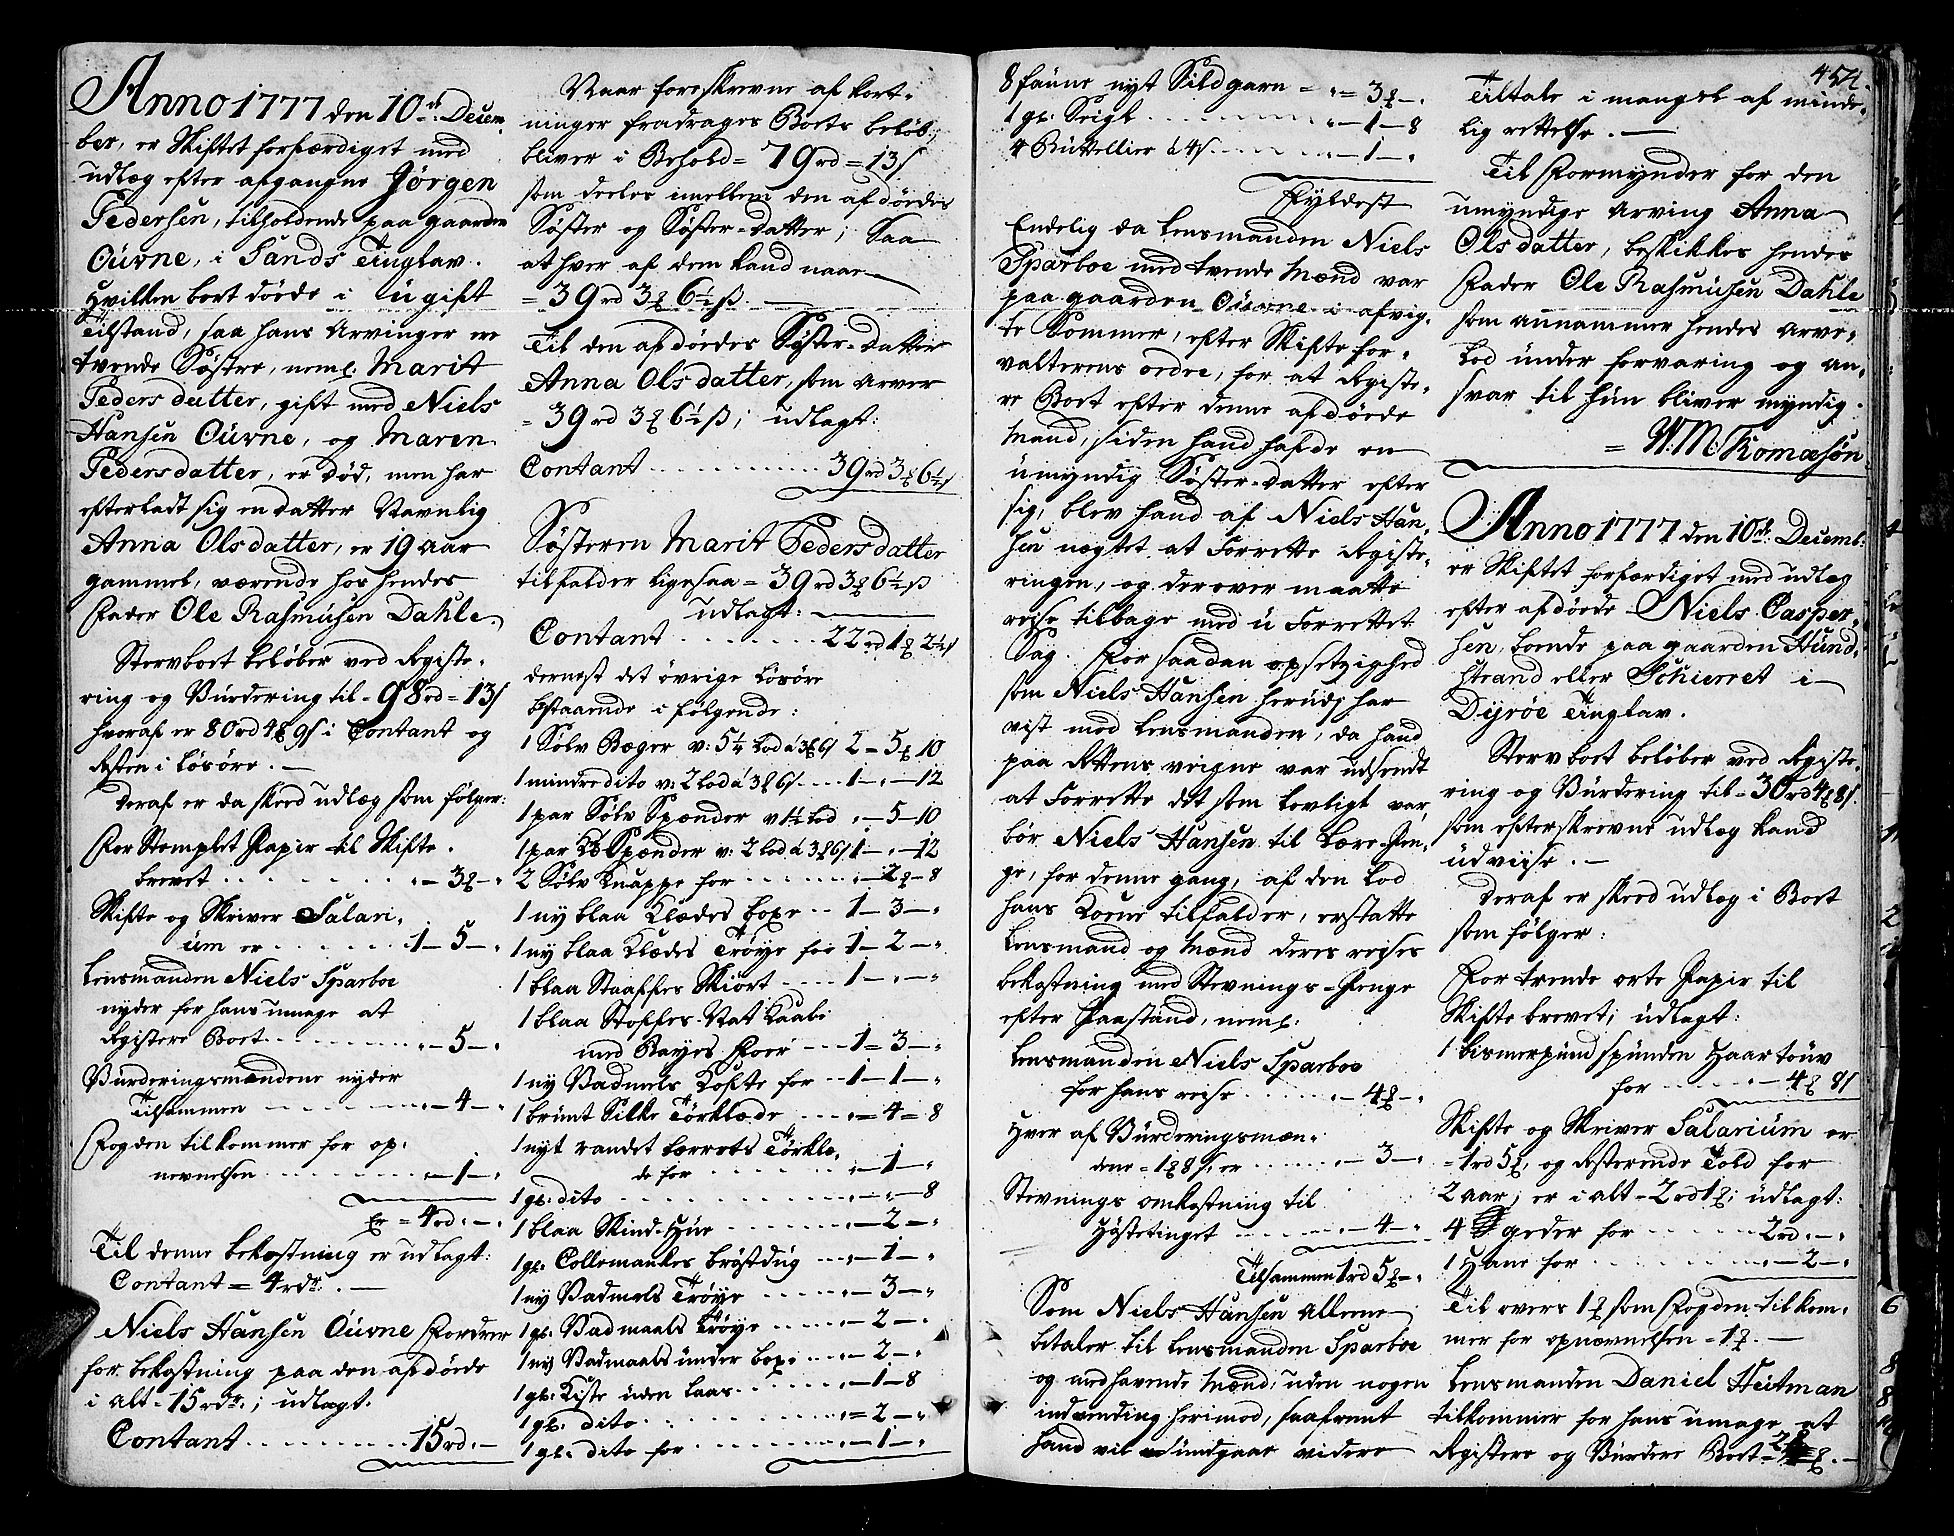 Anno 1777 den 10de Decem-
ber, er Skiftet forfærdiget med
udlæg efter afgangne Jörgen
Pedersen, tilholdende paa gaarden
Oüvne, i Sands Tinglav.
Hvilken bort døde i ugift
Tilstand, saa hans Arvinger ere
tvende Søstre, neml. Marit
Peders datter, gift med Niels
Hansen Oüvne, og Maren
Pedersdatter, er død, men har
efterladt sig en datter Navnlig
Anna Olsdatter, er 19 aar
gammel, værende hos hendes
Fader Ole Rasmüsen Dahle,
Stervboet beløber ved Registe-
ring og Vurdering til = 98 rd = 13 s
hvoraf er 80 rd 4 9 s i Contant og
Resten i Løsøre. —
deraf er da skeed udlæg som følger:
For Stemplet Papir til Skifte-
brevet . . . . „ — 3 — „
Skifte og Skriver Salari-
um er . . . . 1 — 5 — „
Lensmanden Niels Sparboe
nyder for hans umage at
Registere Boet . . . . „ — 5 — „
Vurderingsmændene nyder
Tilsammen . . . . „ — 4 — „
Fogden tilkommer for op-
nevnelsen . . . . „ — 1 — „
Er = 4 rd „ — „
Til denne bekostning er udlagt:
Contant = 4 rdr. —
Niels Hansen Oüvne Fordrer
for bekostning paa den afdøde
i alt = 15 rdr.; udlagt:
Contant . . . . 15 rd. —
Naar foreskrevne af kort-
ninger fradrages Boets beløb,
bliver i Behold = 79 rd = 13 s
som deeles imellem den afdødes
Søster og Søster-datter; Saa
at hver af dem kand naae
= 39 rd 3 6½ s. —
Til den afdødes Søster-datter
Anna Olsdatter, som arver
= 39 rd 3 6½ s; udlagt:
Contant . . . . 39 rd 3 6½ s
Søsteren Marit Pedersdatter
tilfalder ligesaa = 39 rd 3 6½ s
udlagt: —
Contant . . . . 22 rd 1 2½ s
dernest det øvrige Løsøre
bestaaende i følgende:
1 Sølv Bæger v: 5¼ Lod á 3 6 s 2 — 5 10
1 mindre dito v: 2 Lod á 3 6 s . . 1 — „ — 12
1 par Sølv Spænder v 1½ Lod „ — 5 — 10
1 par do Spænder v: 2 Lod á 3 6 s 1 — „ — 12
2 Sølv Knappe for . . . . „ — 2 — 8
1 ny blaa Klædes boxe . . 1 — 3 — „
1 ny blaa Klædes Trøye for 1 — 2 — „
1 blaa Stoffes Skiört . . . 1 — „ — „
1 blaa Stoffes Nat Kaabe
med Bayes Foer . . . 1 = 3 — „
1 ny Vadmels Kofte for . . 1 — 1 — „
1 brünt Silke Tørklæde . . . „ = 4 = 8
1 nyt randet Lerrets Tørklæ-
de for . . . . „ — 1 — „
1 gl: dito . . . . „ — „ — 8
1 blaa Skind-Hüe . . . . „ — 2 — „
1 gl: Collemankes brøstdüg . . „ — 1 — „
1 ny Vadmels Trøye . . . „ — 3 — „
1 gl: Vadmaels Trøye . . . „ — 2 — „
1 ny Vadmaels ünder boxe . . „ — 2 — „
1 gl: Kiste uden Laas . . . „ — 1 — 8
1 gl: dito . . . . „ = 2 — „
1 gl: dito for . . . . „ — 1 — „
454.
8 faüne nyt Sildgarn = „ = 3 — „
1 gl: Seigl . . . . „ — 1 — 8
4 Büttellier á 4 s . . . „ — 1 — „
Fyldest
Endelig da Lensmanden Niels
Sparboe med tvende Mænd var
paa gaarden Oüvne i afvig-
te Sommer, efter Skiftefor-
valterens ordre, for at Registe-
re Boet efter denne afdøde
Mand, siden hand hafde en
ümyndig Søster-datter efter
sig, blev hand af Niels Han-
sen nægtet at Forrette Registe-
ringen, og derover maatte
reise tilbage med ü Forrettet
Sag. For saadan opsetzighed
som Niels Hansen herudj har
vist mod Lensmanden, da hand
paa Rettens veigne var üdsendt
at Forrette det som Lovligt var,
bør Niels Hansen til Lære-Pen-
ge, for denne gang, af den Lod
hans Kone tilfalder, erstatte
Lensmand og Mænd deres reises
bekostning med Stevnings-Penge
efter Paastand, neml.
Lensmanden Niels Sparboe
for hans reise . . . . — 4 — „
Hver af Vürderingsmæn-
dene = 1 8 s. er . . . . „ — 3 — „
Stevnings omkostning til
Høstetinget . . . . „ — 4 — „
Tilsammen 1 rd 5 — „
Som Niels Hansen allene
betaler til Lensmanden Sparboe
og medhavende Mænd, uden nogen
indvending herimod, saafremt
hand vil undgaae videre
Tiltale i mangel af minde-
lig rettelse. —
Til Formynder for den
umyndige Arving Anna
Olsdatter, beskikkes hendes
Fader Ole Rasmüsen Dahle
som annammer hendes arve-
Lod ünder forvaring og an-
svar til hün bliver myndig.
Anno 1777 den 10de Decemb:
er Skiftet forfærdiget med udlæg
efter afdøde Niels Casper-
sen, boende paa gaarden Hünd-
strand eller Schierret i
Dyrøe Tinglav.
Stervboet beløber ved Registe-
ring og Vürdering til = 30 rd 4 8 s.
som efterskrevne udlæg kand
üdviise. —
deraf er skeed udlæg i Boet
som følger:
For trende orte Papir til
Skiftebrevet; üdlagt:
1 bismerpünd spünden Haartoüv
for . . . . — 4 8 s
Skifte og Skriver Salariüm er
= 1 rd 5, og Resterende Told for
2 aar; er i alt = 2 rd 1; üdlagt:
4 geder for . . . . 2 rd „ — „
1 Hane for . . . . „ — 2 — „
Til overs 1 som Fogden tilkom-
mer for opnævnelsen = 1. —
Lensmanden Daniel Heitman
tilkommer for hans umage at
Registere og Vurdere Boet = 2